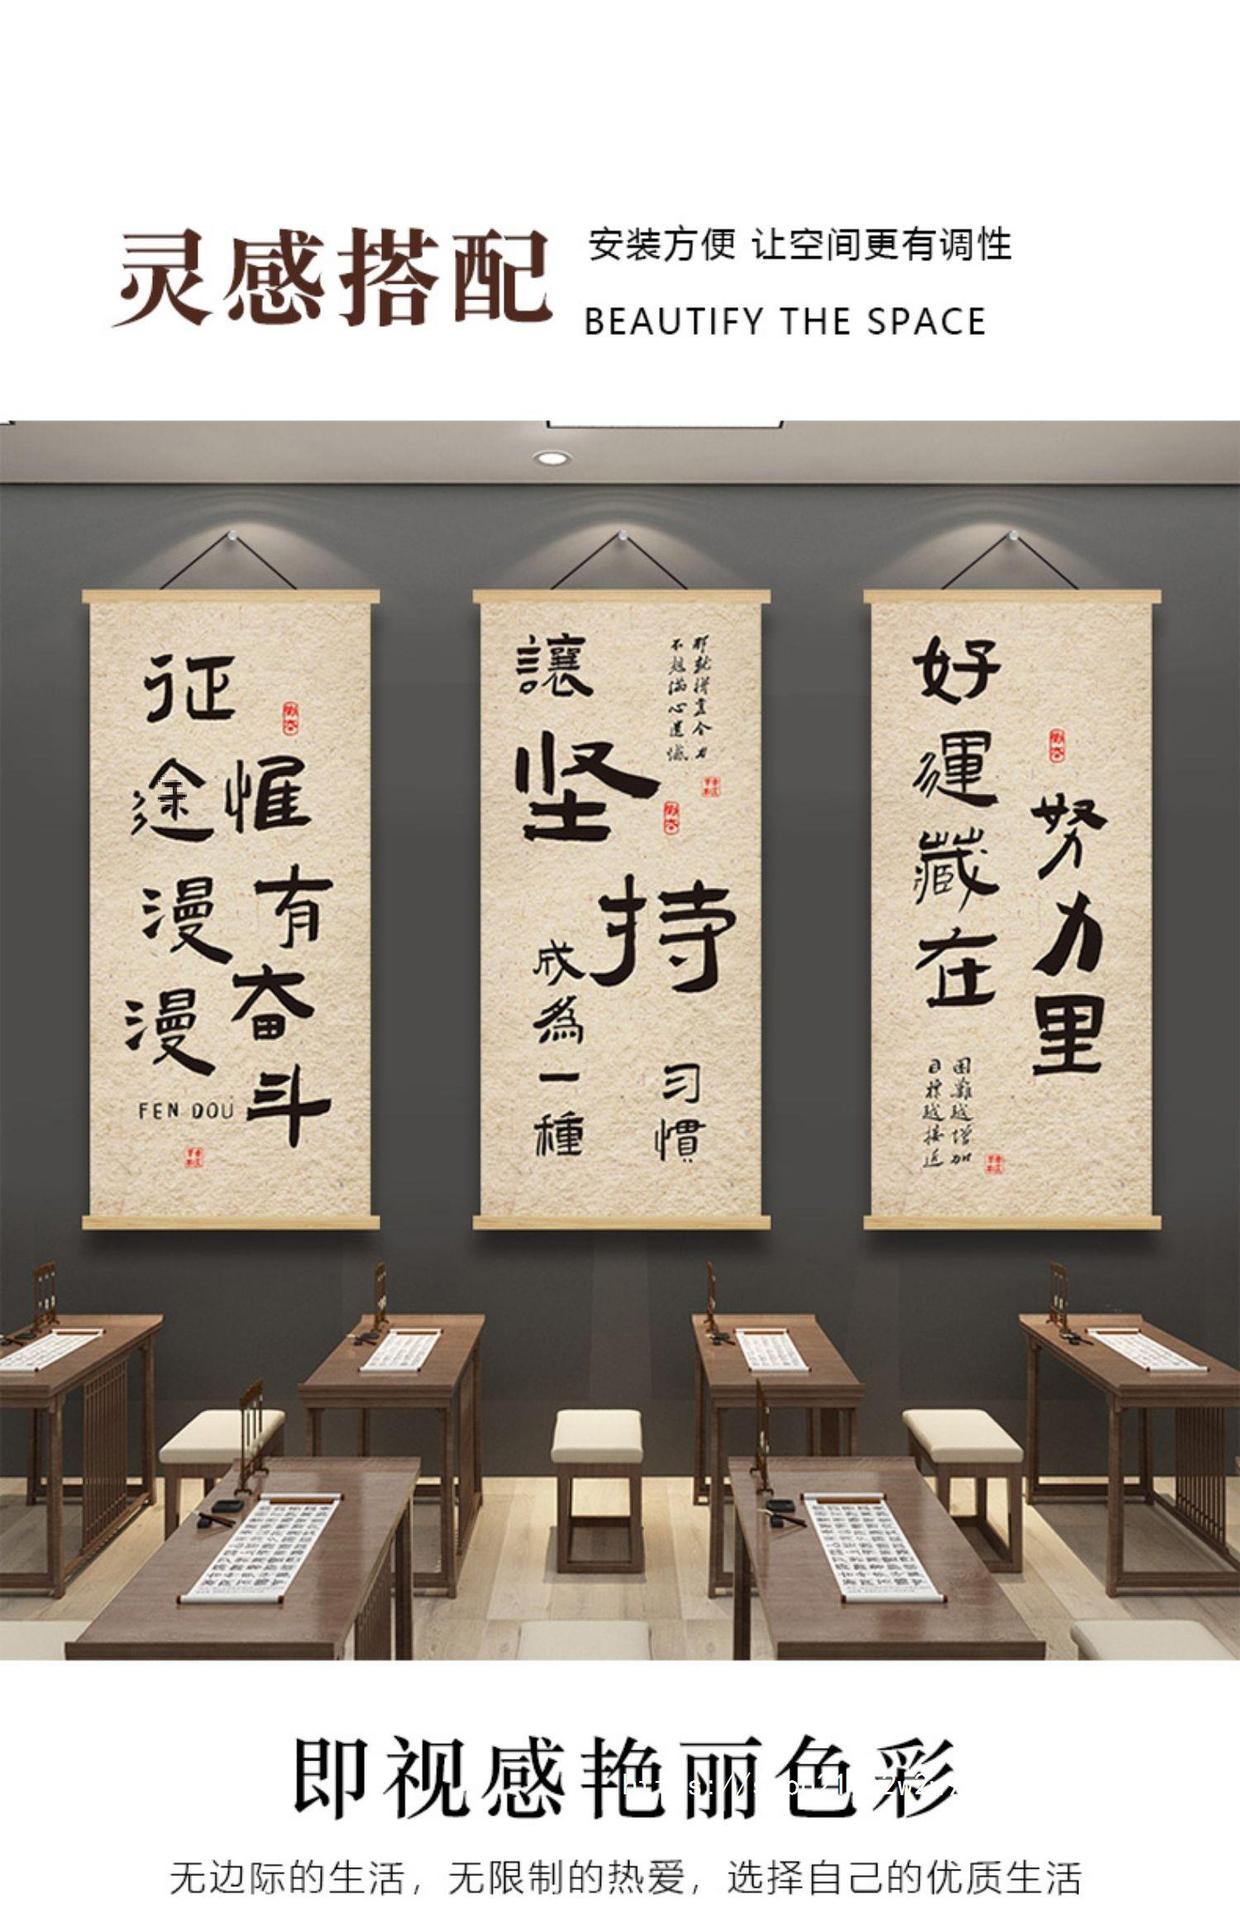 灵感搭配
安装方便 让空间更有调性
BEAUTIFY THE SPACE
征途漫漫
惟有奋斗
FEN DOU
讓坚持
成為一種
习慣
那就拼盡全力
不想滿心遺憾
好運藏在
努力里
困難越增加
目標越接近
即视感艳丽色彩
无边际的生活，无限制的热爱，选择自己的优质生活